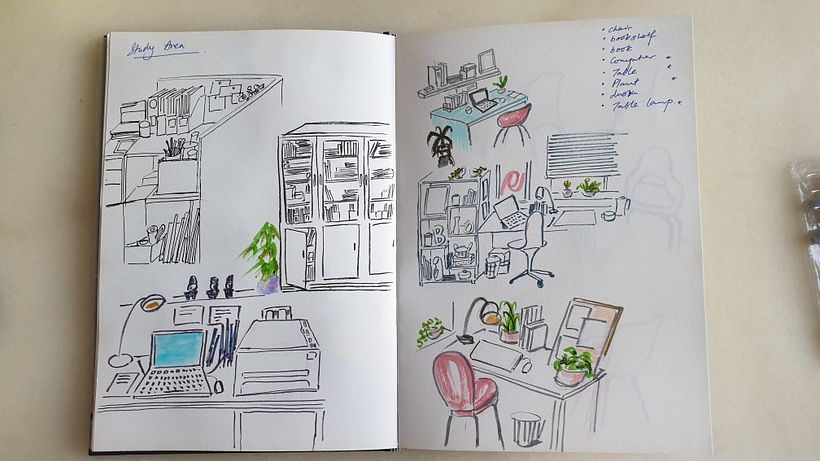 Study Area
• chair
• bookshelf
• book
• Computer *
• Table *
• Plant *
• dustbin
• Table lamp. *
B